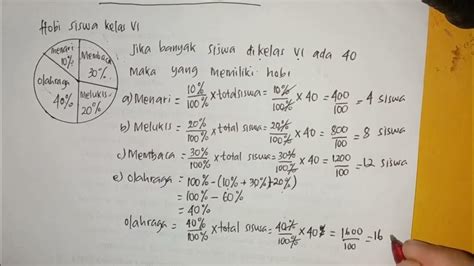 Hobi siswa kelas VI
menari
10%
Membaca
30%
Olahraga
40%
Melukis
20%
Jika banyak siswa dikelas VI ada 40
Maka yang memiliki hobi
a) Menari = 10%/100% × total siswa = 10%/100% × 40 = 400/100 = 4 siswa
b) Melukis = 20%/100% × total siswa = 20%/100% × 40 = 800/100 = 8 siswa
c) Membaca = 30%/100% × total siswa = 30%/100% × 40 = 1200/100 = 12 siswa
e) Olahraga = 100% - (10% + 30% + 20%)
= 100% - 60%
= 40%
Olahraga = 40%/100% × total siswa = 40%/100% × 40 = 1600/100 = 16